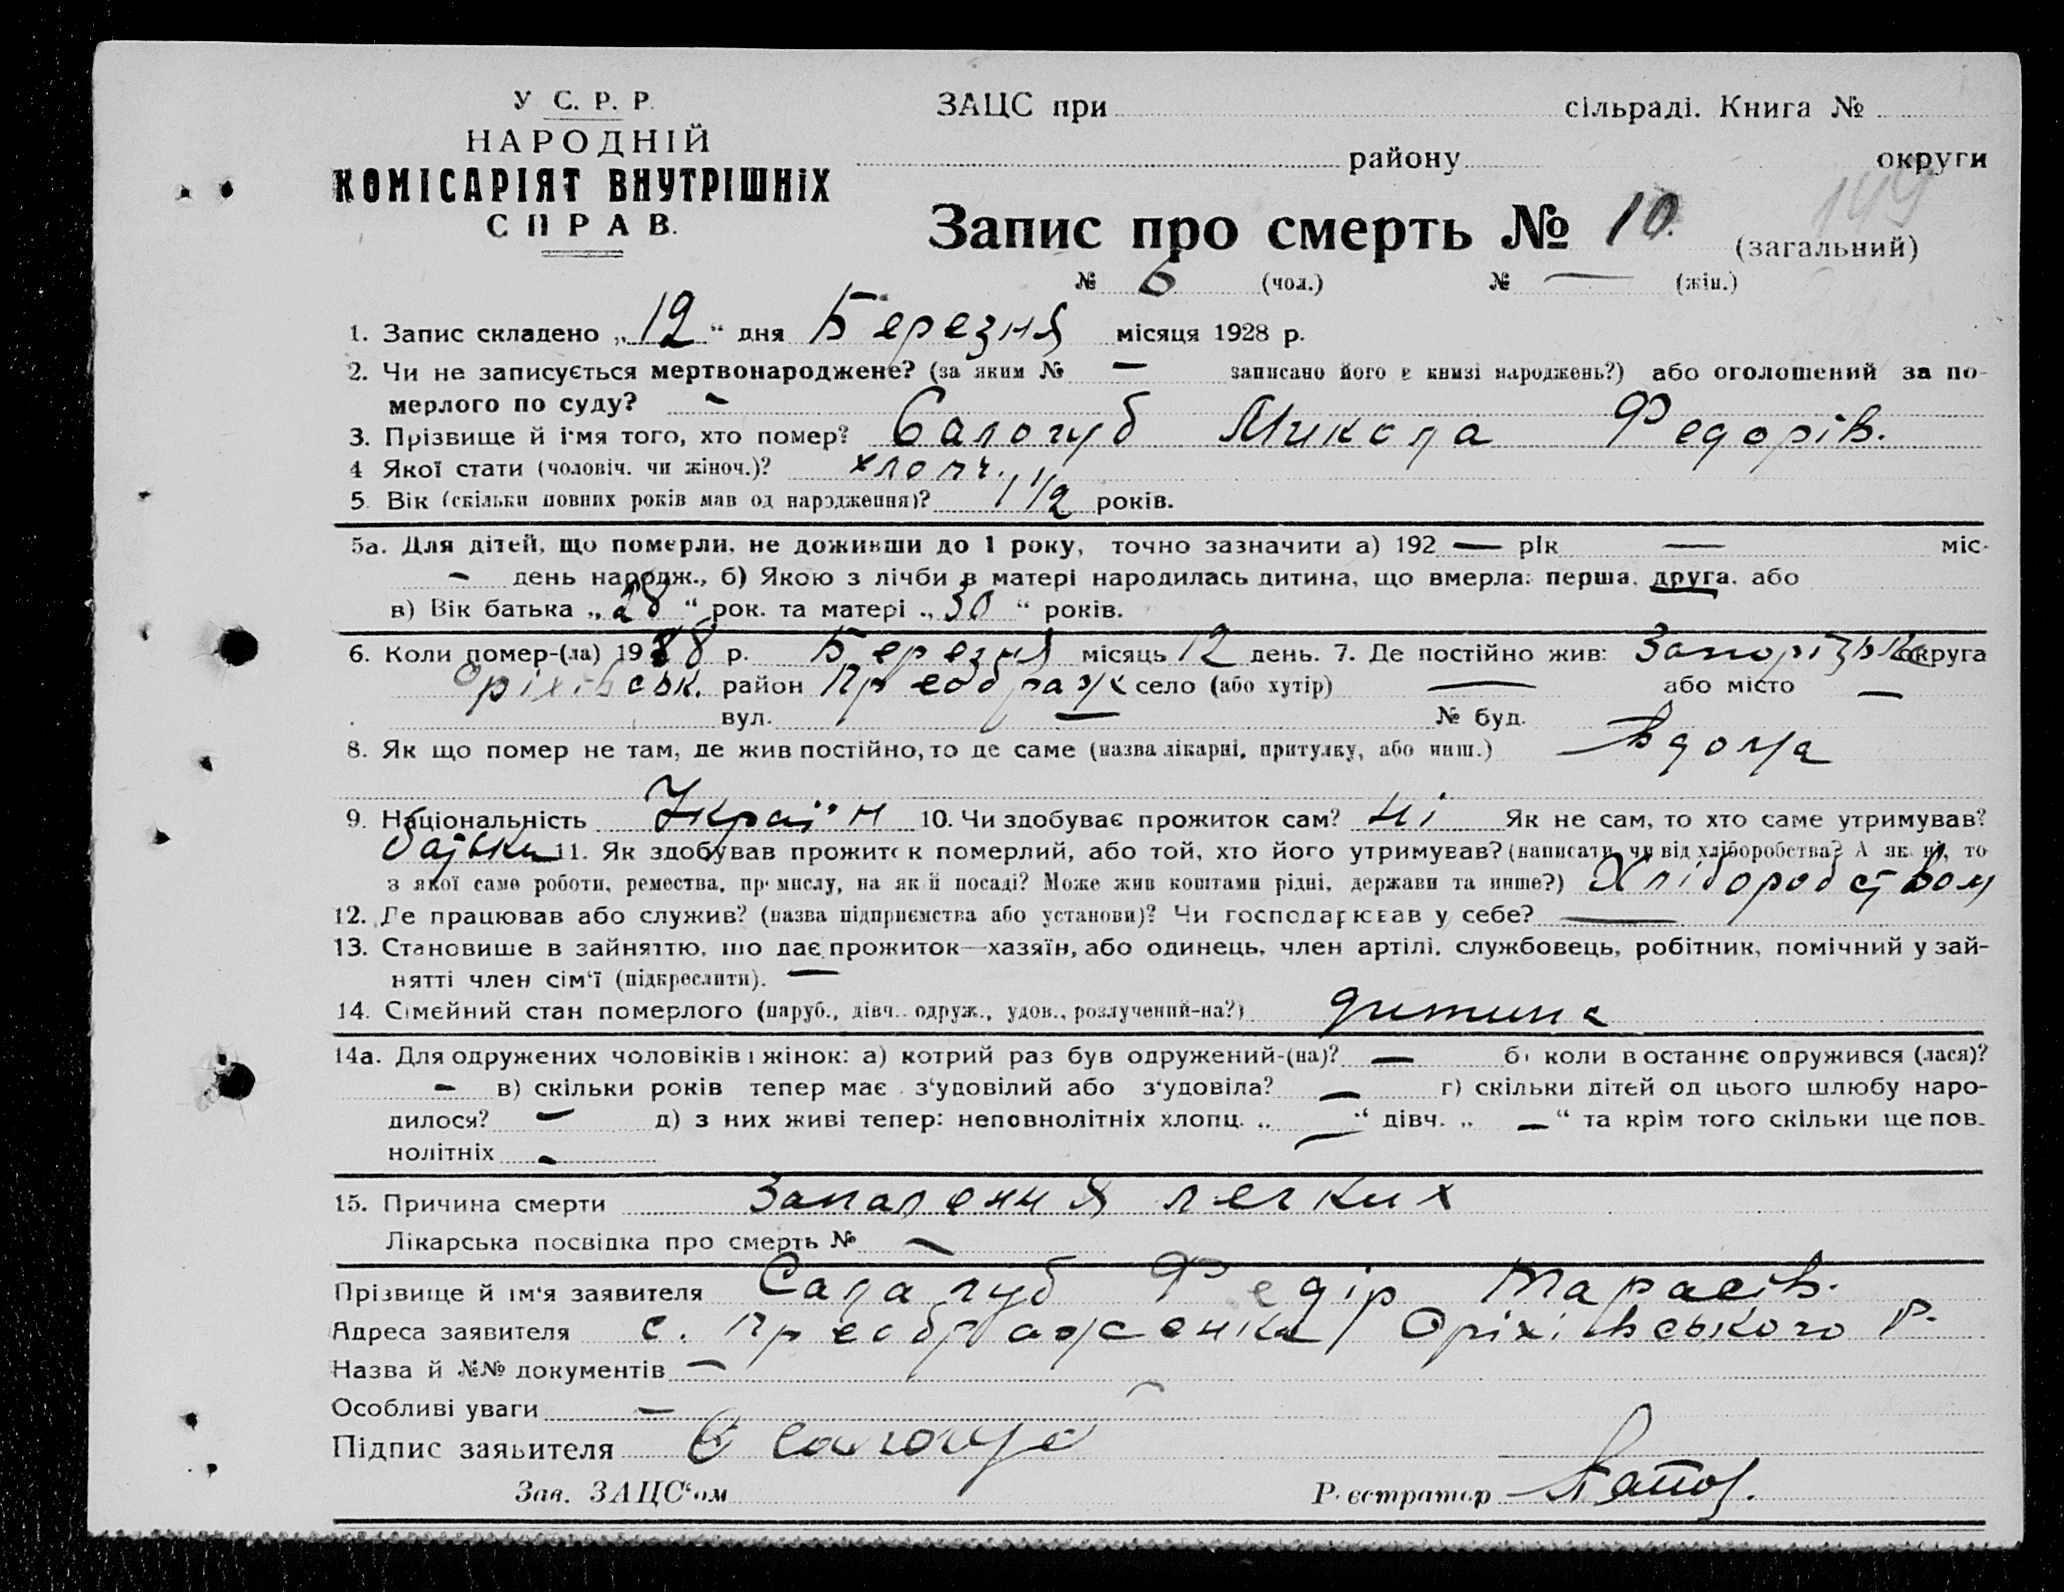 У С. Р. Р.
НАРОДНІЙ
КОМІСАРІЯТ ВНУТРІШНІХ
СПРАВ.
ЗАЦС при сільраді. Книга №
району округи
149
Запис про смерть № 10. (загальний)
№ 6 (чол.) № — (жін.)
1. Запис складено „12“ дня Березня місяця 1928 р.
2. Чи не записується мертвонароджене? (за яким № — записано його в книзі народжень?) або оголошений за по-
мерлого по суду? -
3. Прізвище й ім'я того, хто помер? Салогуб Микола Федорів.
4 Якої стати (чоловіч. чи жіноч.)? хлопч.
5. Вік (скільки повних років мав од народження)? 1 1/2 років.
5а. Для дітей, що померли, не доживши до 1 року, точно зазначити а) 192 — рік — міс.
— день народж., б) Якою з лічби в матері народилась дитина, що вмерла: перша, друга, або
в) Вік батька „28“ рок. та матері „30“ років.
6. Коли помер-(ла) 1928 р. Березня місяць 12 день. 7. Де постійно жив: Запорізька округа
Оріхівськ. район Преображ село (або хутір) — або місто —
вул. — № буд.
8. Як що помер не там, де жив постійно, то де саме (назва лікарні, притулку, або инш.) Вдома
9. Національність Україн 10. Чи здобуває прожиток сам? Ні Як не сам, то хто саме утримував?
батьки 11. Як здобував прожиток померлий, або той, хто його утримував? (написати, чи від хліборобства? А як ні, то
з якої саме роботи, ремества, промислу, на якій посаді? Може жив коштами рідні, держави та инше?) Хліборобством
12. Де працював або служив? (назва підприємства або установи)? Чи господарював у себе? —
13. Становише в зайняттю, що дає прожиток—хазяїн, або одинець, член артілі, службовець, робітник, помічний у зай-
нятті член сім'ї (підкреслити). —
14. Сімейний стан померлого (паруб., дівч., одруж., удов., розлучений-на?) дитина
14а. Для одружених чоловіків і жінок: а) котрий раз був одружений-(на)? — б) коли в останнє одружився (лася)?
— в) скільки років тепер має з'удовілий або з'удовіла? — г) скільки дітей од цього шлюбу наро-
дилося? — д) з них живі тепер: неповнолітніх хлопц. „—“ дівч. „—“ та крім того скільки ще пов-
нолітніх -
15. Причина смерти Запалення легких
Лікарська посвідка про смерть № —
Прізвище й ім'я заявителя Салагуб Федір Тарасів.
Адреса заявителя с. Преображенка / Оріхівського Р.
Назва й №№ документів —
Особливі уваги —
Підпис заявителя Салогуб
Зав. ЗАЦС'ом Реєстратор